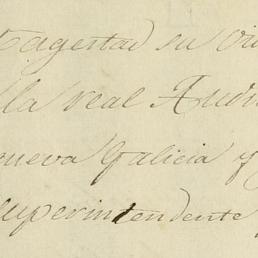 Magestad su Vi
la real Audi
nueva Galicia y
Superintendente